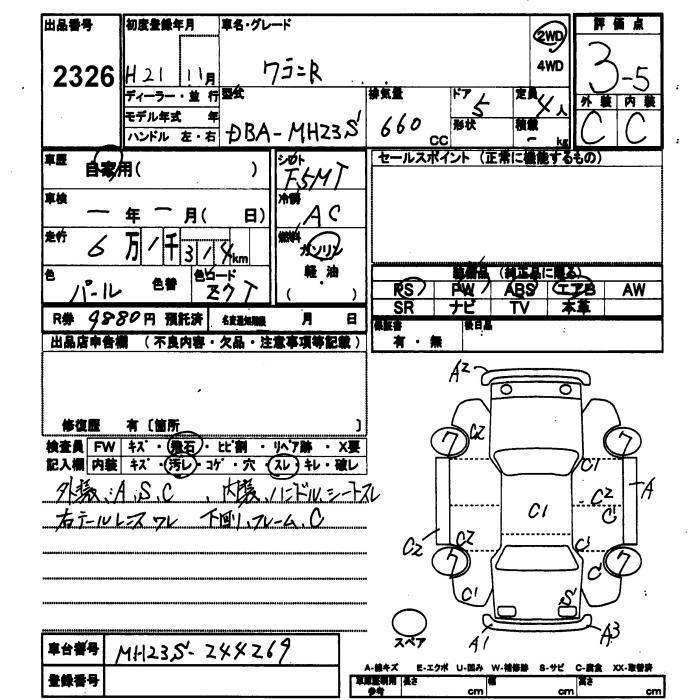 出品番号 初度登録年月 車名・グレード 2WD 評価点
2326 H21 11月 ワゴンR 4WD 3-5
ディーラー・並行 型式 排気量 ドア 定員 外装 内装
モデル年式 年 DBA-MH23S 660 CC 5 4人 C C
ハンドル 左・右 形状 積載 - kg
車歴 自家用( ) シフト セールスポイント (正常に機能するもの)
F5MT
車検 ー年ー月( 日) 冷房
AC
走行 6万1千314km 燃料
ガソリン
軽・油
( )
色 パール 色替 色コード Z7T
装備品 (純正品に限る)
PS PW ABS エアB AW
SR ナビ TV 本革
R券 9880円 預託済 名変通知期限 月 日
保証書 有・無 後日品
出品店申告欄 (不良内容・欠品・注意事項等記載)
修復歴 有 〔箇所 〕
検査員 FW キズ・飛石・ヒビ割・リペア跡・X要
記入欄 内装 キズ・汚レ・コゲ・穴・スレ・キレ・破レ
外装、A、S、C 内装、ハンドル、シートスレ
右テールレンズ ワレ 下回り、フレーム、C
A2
7 C2 7
C1
A
C2 C1 C2
C
C2 C2 C
7 C 7
C1 S
A1 A3
スペア
車台番号 MH23S-244269
登録番号
A-線キズ E-エクボ U-凹み W-補修跡 S-サビ C-腐食 XX-取替済
車庫証明用参考 長さ cm 幅 cm 高さ cm